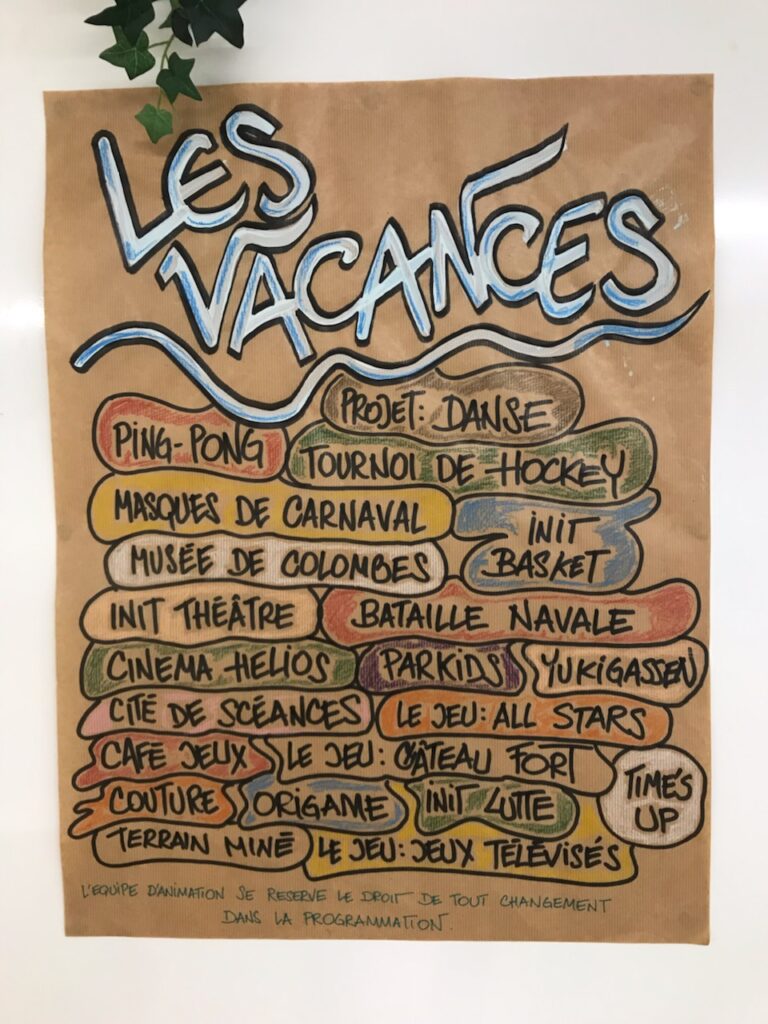 LES
VACANCES
PROJET: DANSE
PING-PONG
TOURNOI DE HOCKEY
MASQUES DE CARNAVAL
INIT
BASKET
MUSÉE DE COLOMBES
INIT THÉÂTRE
BATAILLE NAVALE
CINEMA HELIOS
PARKIDS
YUKIGASSEN
CITÉ DE SCÉANCES
LE JEU: ALL STARS
CAFÉ JEUX
LE JEU: CÂTEAU FORT
TIME'S
UP
COUTURE
ORIGAME
INIT LUTTE
TERRAIN MINÉ
LE JEU: JEUX TÉLÉVISÉS
L'EQUIPE D'ANIMATION SE RESERVE LE DROIT DE TOUT CHANGEMENT
DANS LA PROGRAMMATION.